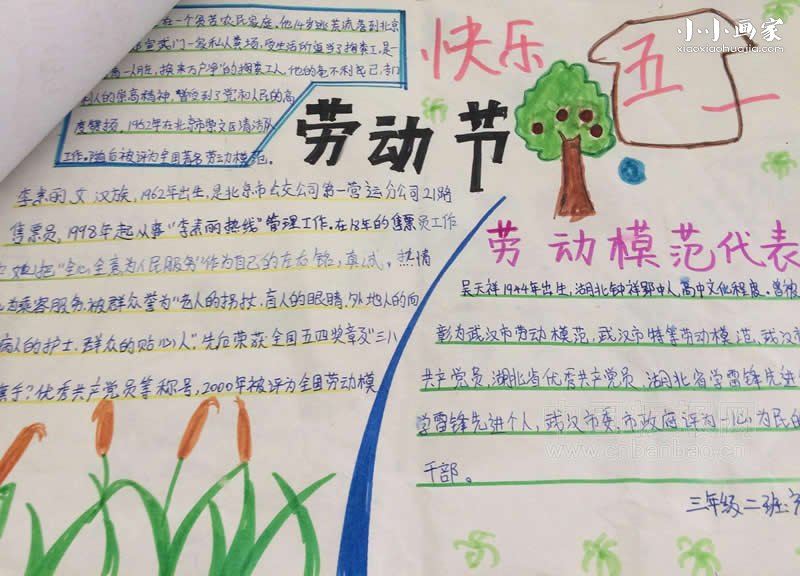 在一个贫苦农民家庭。他14岁逃荒流落到北京
宣武门一家私人粪场,受生活所迫当了掏粪工,是一
一人脏,换来万户净"的掏粪工人,他的毫不利己,专门
利人的崇高精神,曾受到了党和人民的高
度赞扬,1962年在北京市崇文区清洁队
工作。随后被评为全国著名劳动模范。
劳动节
快乐
五一
李素丽 女 汉族,1962年出生,是北京市公交公司第一营运分公司21路
售票员,1998年起从事"李素丽热线"管理工作。在18年的售票员工作
她把"全心全意为人民服务"作为自己的左右铭,真诚,热情
为乘客服务,被群众誉为"老人的拐杖,盲人的眼睛,外地人的向
病人的护士,群众的贴心人"。先后荣获全国五四奖章及"三八
旗手"优秀共产党员等称号,2000年被评为全国劳动模
劳动模范代表
吴天祥1944年出生,湖北钟祥郢中人,高中文化程度。曾被
彰为武汉市劳动模范,武汉市特等劳动模范,武汉市
共产党员,湖北省优秀共产党员,湖北省学雷锋先进个
学雷锋先进个人,武汉市委,市政府评为一心为民的
干部。
三年级二班:
小小画家
xiaoxiaohuajia.com
www.cnbanbao.cn